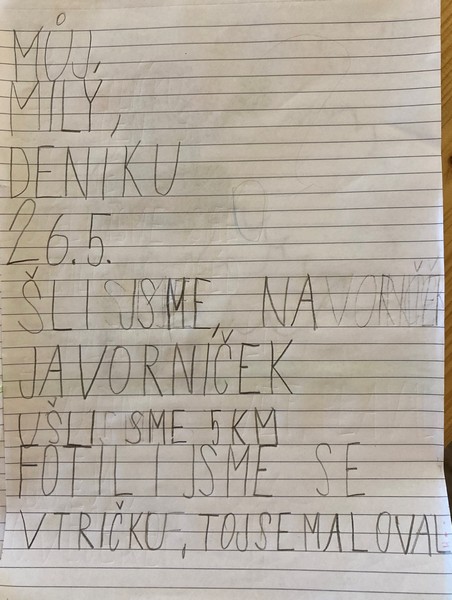 MŮJ,
MILÝ,
DENIKU
26.5.
ŠLI JSME, NA
JAVORNÍČEK
UŠLI JSME 5 KM
FOTILI JSME SE
VTRIČKU, TOJSEMALOVAL